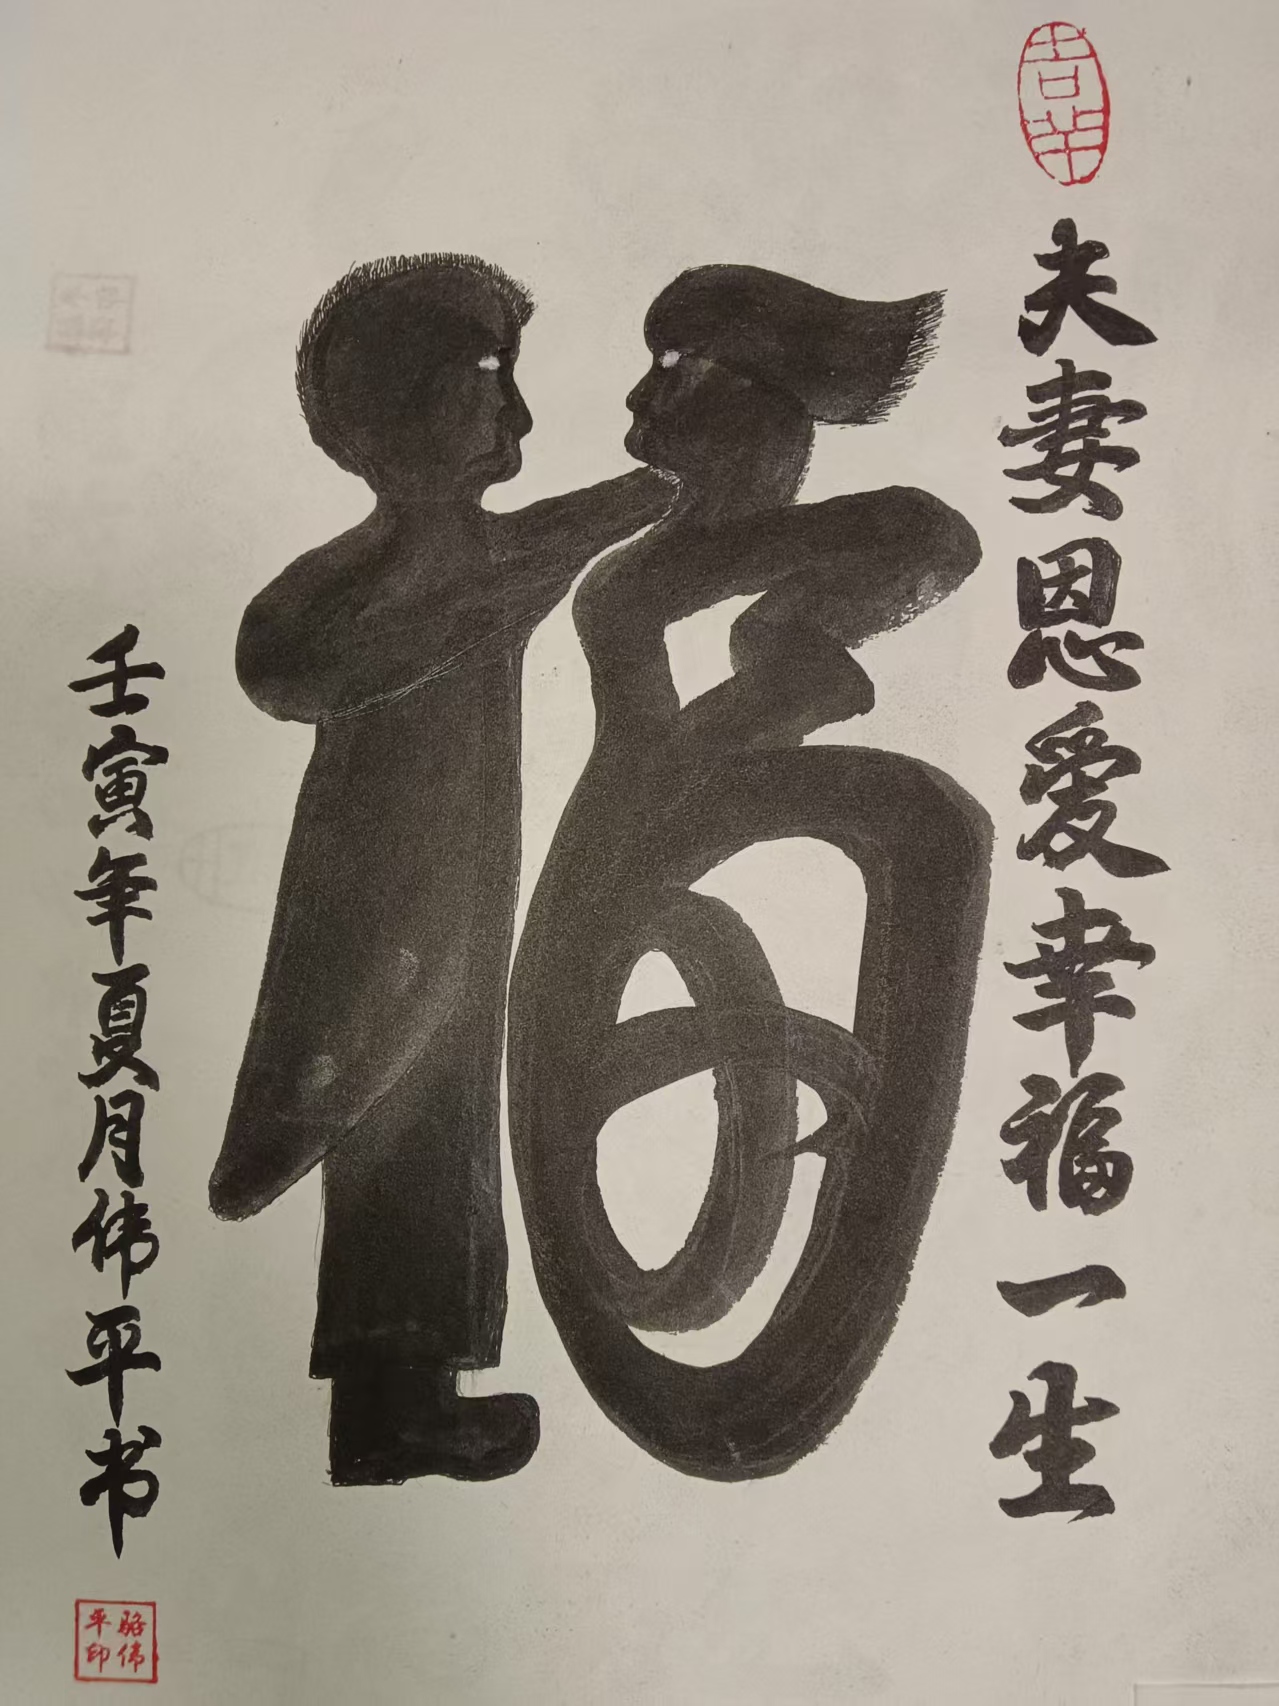 吉羊
夫妻恩愛幸福一生
福
壬寅年夏月伟平书
骆伟平印